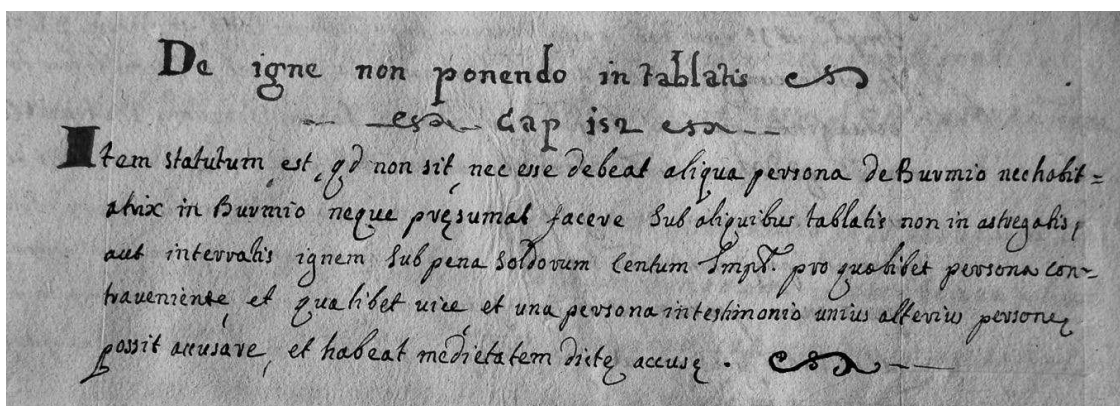 De igne non ponendo in tablatis
Cap 152
Item statutum est, qd non sit, nec esse debeat aliqua persona de Burmio nec habit=
atrix in Burmio neque pręsumat facere sub aliquibus tablatis non in astregatis,
aut interratis ignem sub pena soldorum Centum Impr. pro qualibet persona con-
traveniente, et qualibet vice et una persona in testimonio unius alterius personę
possit accusare, et habeat medietatem dictę accusę.